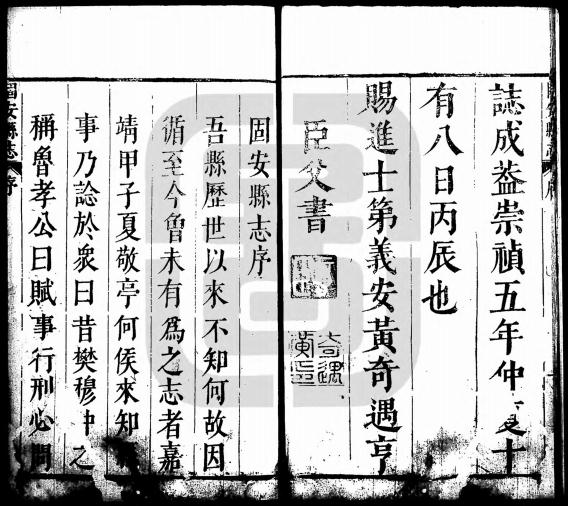 誌成葢崇禎五年仲夏十
有八日丙辰也
賜進士第義安黃奇遇亨
臣父書
黃奇遇印
固安縣志序
吾縣歷世以來不知何故因
循至今曾未有爲之志者嘉
靖甲子夏敬亭何侯來知
事乃諗於衆曰昔樊穆仲之
稱魯孝公曰賦事行刑必問
固安縣志 序